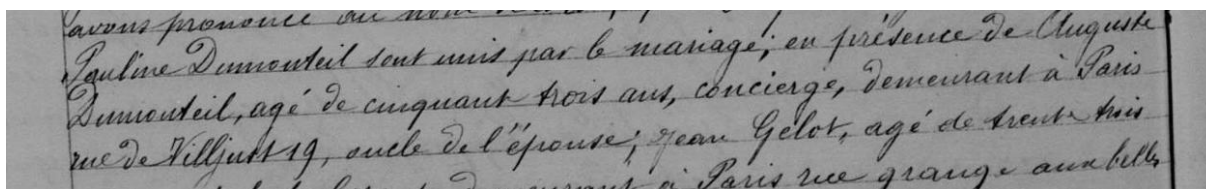 avons prononcé au nom
Pauline Dumonteil sont unis par le mariage; en présence de Auguste
Dumonteil, agé de cinquant trois ans, concierge, demeurant à Paris
rue de Villjust 19, oncle de l'épouse; Jean Gélot, agé de trente trois
demeurant à Paris rue grange aux belles